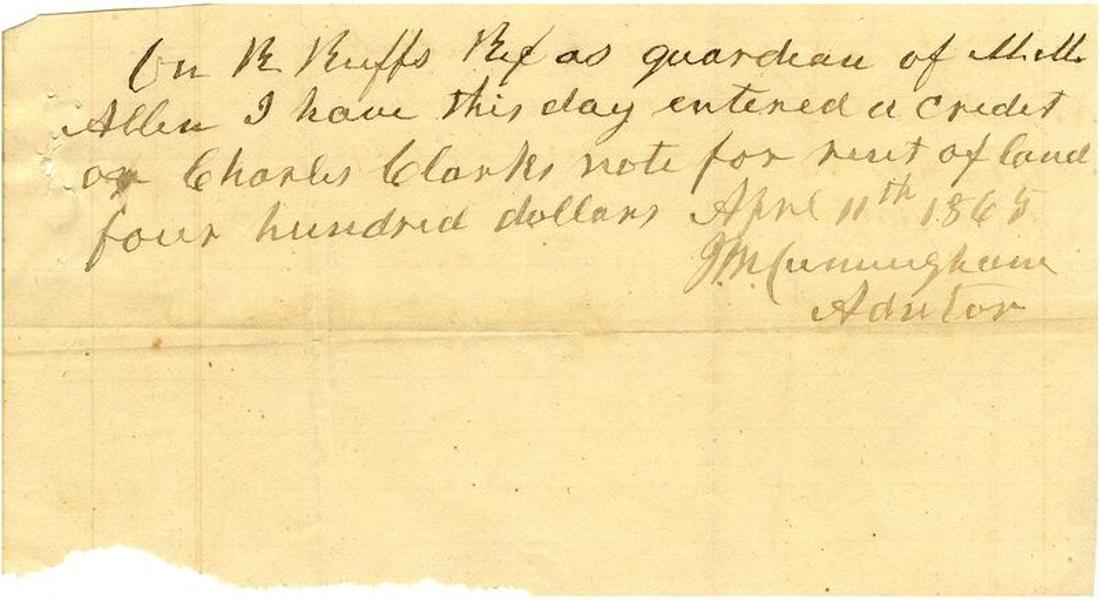 On R Ruffs Ref as guardian of M.M.
Allen I have this day entered a credit
on Charles Clarks note for rent of land
four hundred dollars April 11th 1865
J.M. Cunningham
Adretor